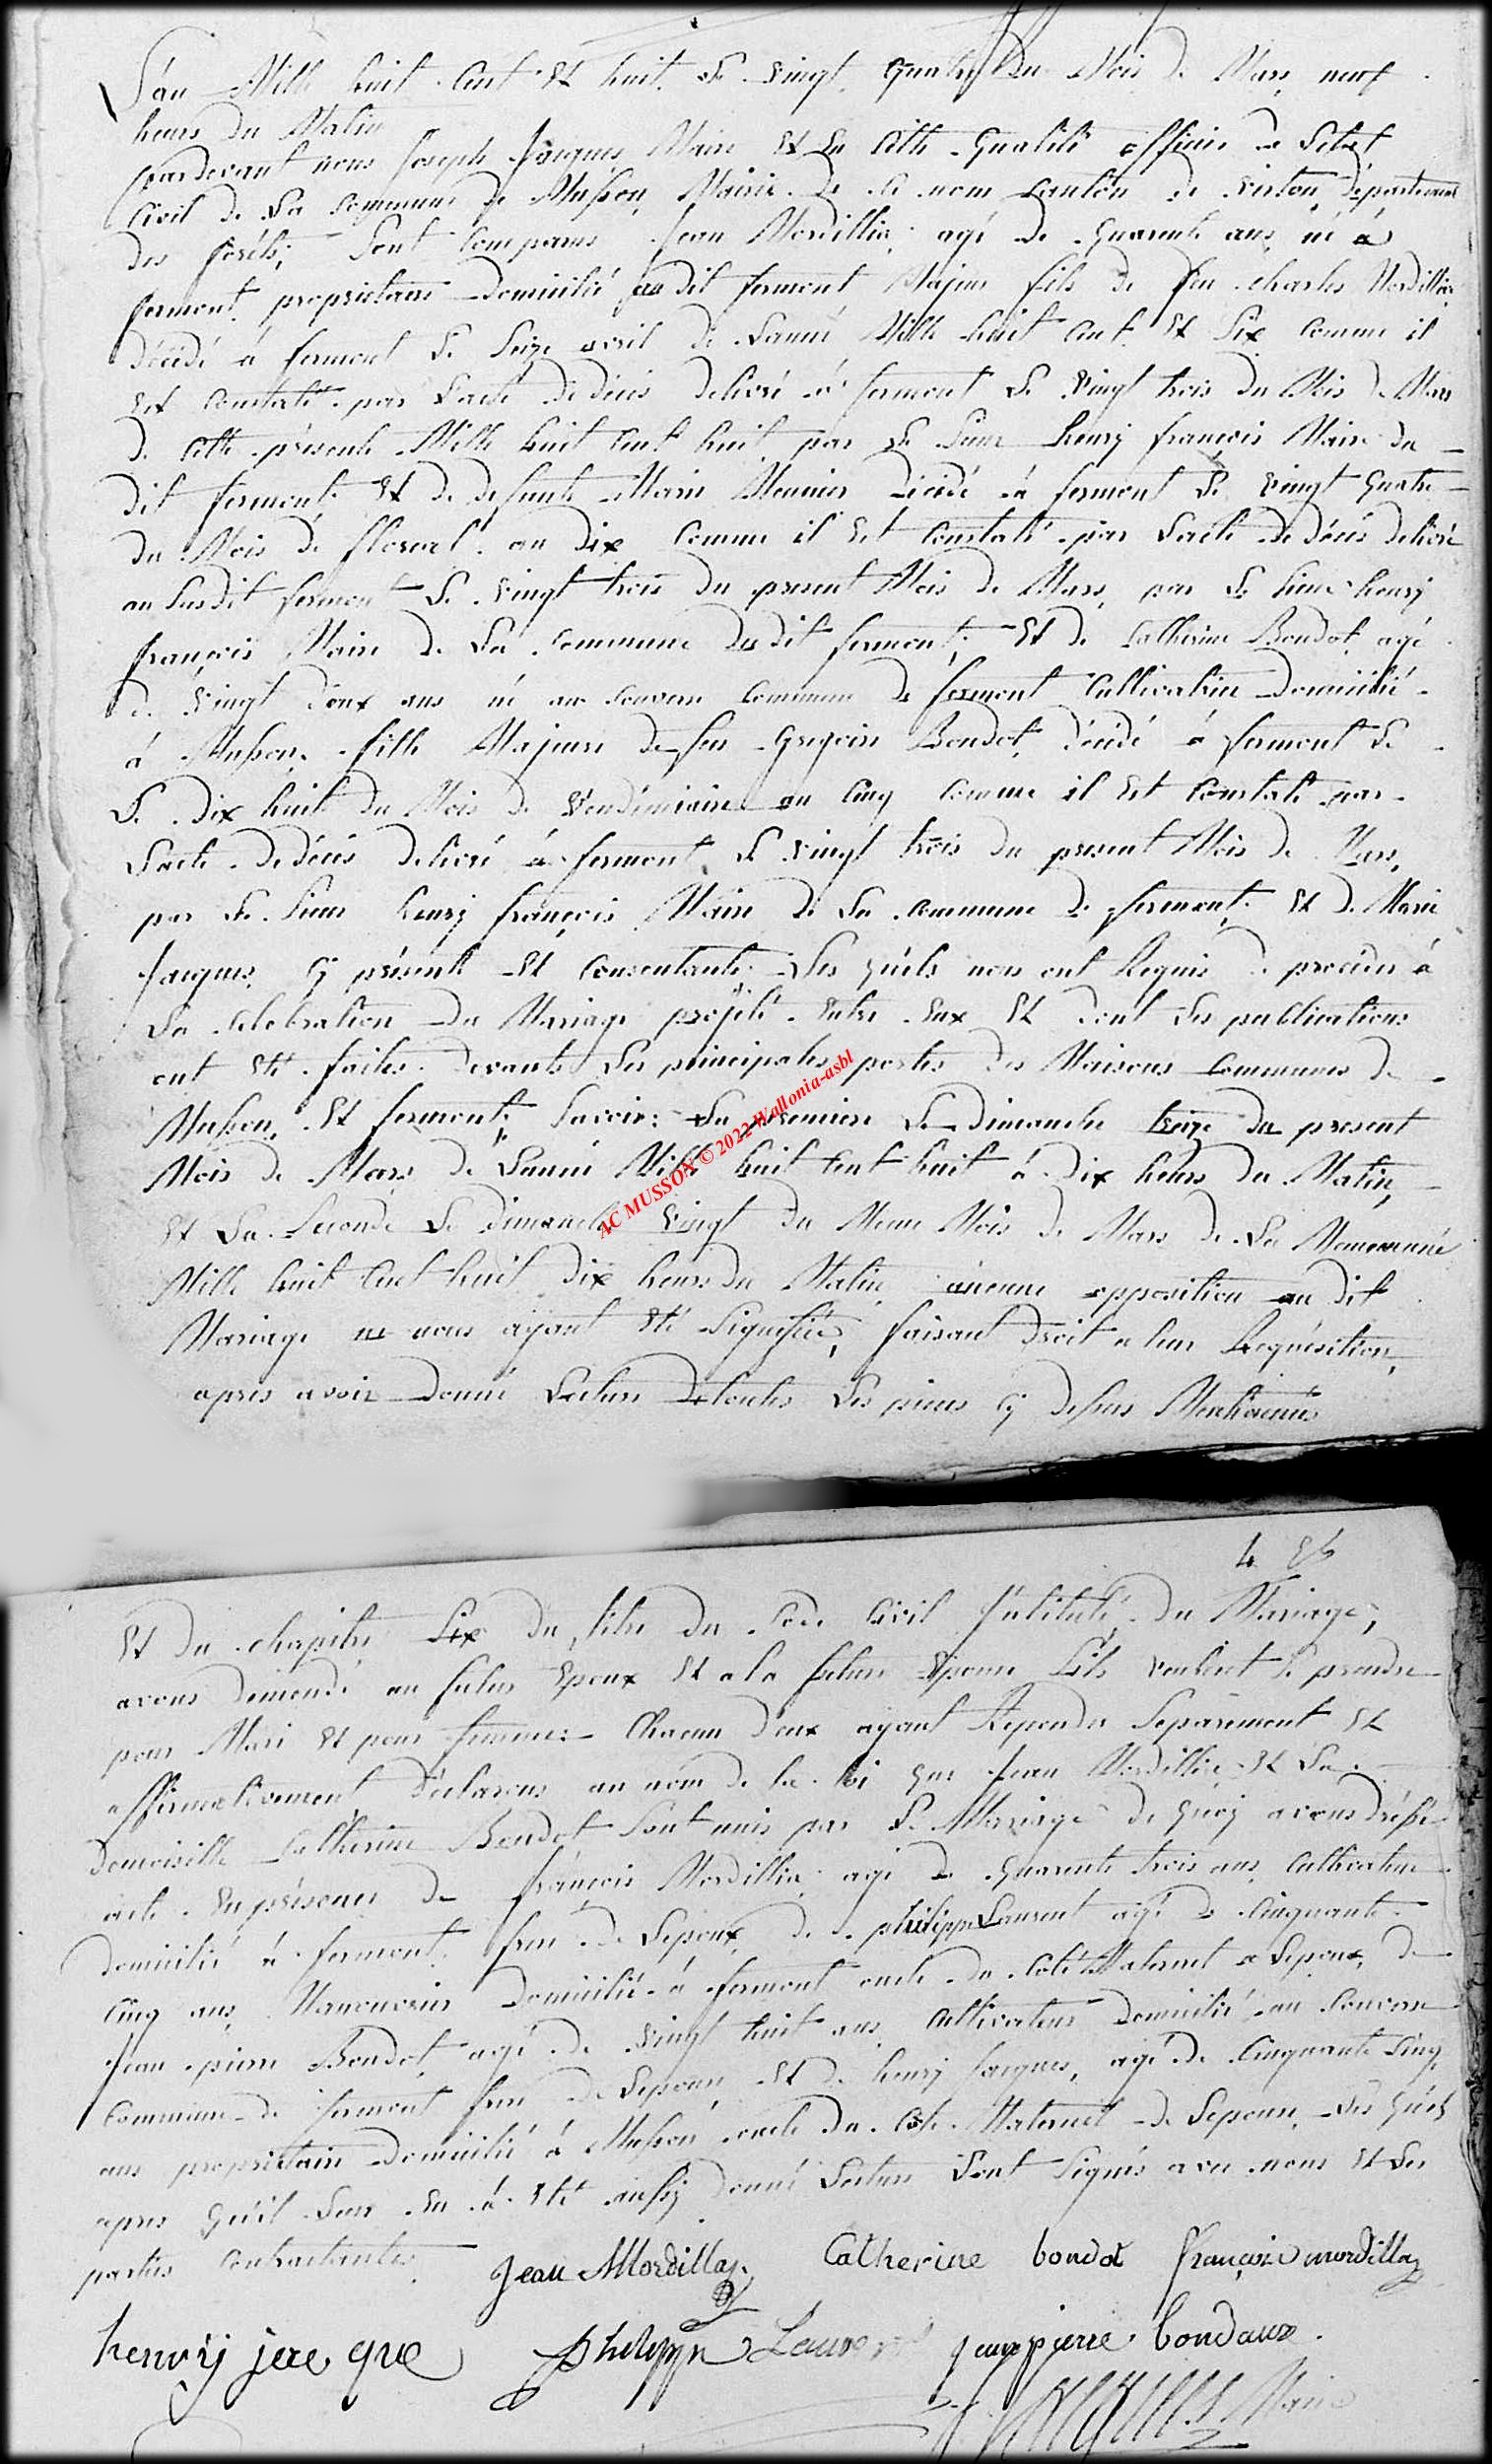 L'an Mille huit Cent Et huit Le vingt quatre du Mois de Mars neuf
heures du Matin
pardevant nous Joseph Jacques Maire Et En Cette Qualité officier de Letat
Civil de La Commune de Musson, Mairie de ce nom Canton de virton, departement
des forêts, Sont Comparus Jean Mordillia, agé de quarente ans, né à
fermont, proprietaire Domicilié au dit fermont Majeur fils de feu charles Mordillia
décédé à fermont Le Seize avril de Lanné Mille huit Cent Et Six Comme il
Est Constaté par Lacte de décès delivré à fermont Le vingt trois du Mois de Mars
de Cette présente Mille huit Cent huit par Le Sieur henry françois Maire du
dit fermont; Et de defunte Marie Meunier décédé à fermont Le vingt quatre
du Mois de floreal an dix Comme il Est Constaté par Lacte de décès delivré
au Susdit fermont Le vingt trois du present Mois de Mars par Le Sieur henry
françois Maire de La Commune du dit fermont; Et de Catherine Bondot agé
de vingt deux ans né au Convers Commune de fermont Cultivatrice Domicilié
à Musson, fille Majeure de feu Gregoire Bondot décédé à fermont Le
Le dix huit du Mois de Vendémiaire an Cinq Comme il Est Constaté par
Lacte de décès delivré à fermont Le vingt trois du present Mois de Mars,
par Le Sieur henry françois Maire de La Commune de fermont; Et de Marie
Jacques Cy présente Et Consentante. Les quels nous ont Requis de proceder à
La Celebration du Mariage projété Entre Eux Et dont Les publications
ont Eté faites devants Les principales portes des Maisons Communes de
Musson, Et fermont; Savoir: La premiere Le dimanche treize du present
Mois de Mars de Lanné Mille huit Cent huit à dix heures du Matin,
Et La Seconde Le dimanche vingt du Meme Mois de Mars de La Meme anné
Mille huit Cent huit dix heures du Matin aucune opposition au dit
Mariage ne nous ayant Eté Signifiée, faisant droit a leur Requisition,
apres avoir donné Lecture de toutes Les pieces Cy dessus Mentionnés
4
Et du chapitre Six du titre du Code Civil Intitulé du Mariage,
avons demendé au futur Epoux Et a la future Epouse Sils veulent Se prendre
pour Mari Et pour femme: Chacun deux ayant Repondu Separement Et
affirmativement déclarons au nom de la loi que Jean Mordillia Et La
Demoiselle Catherine Bondot Sont unis par Le Mariage de quoi avons dréssé
acte En présence de françois Mordillia agé de quarente trois ans Cultivateur
domicilié à fermont frere de Lepoux, de philippe Laurent agé de Cinquante
Cinq ans, Manouvrier Domicilié à fermont oncle du Coté Maternel a Lepoux, de
Jean pierre Bondot, agé de vingt huit ans Cultivateur domicilié au Convers
Commune de fermont frere de Lepouse Et de henry Jacques, agé de Cinquante Cinq
ans proprietaire Domicilié à Musson oncle du Coté Maternel de Lepouse. Les quels
apres quil Leur En à Eté aussy donné Lecture Sont Signés avec nous Et Les
parties Contractantes
Jean Mordillag Catherine bondot françois mordillag
henry jace que philippe Laurent jean pierre bondaux
Maire
AC MUSSON © 2022 Wallonia-asbl